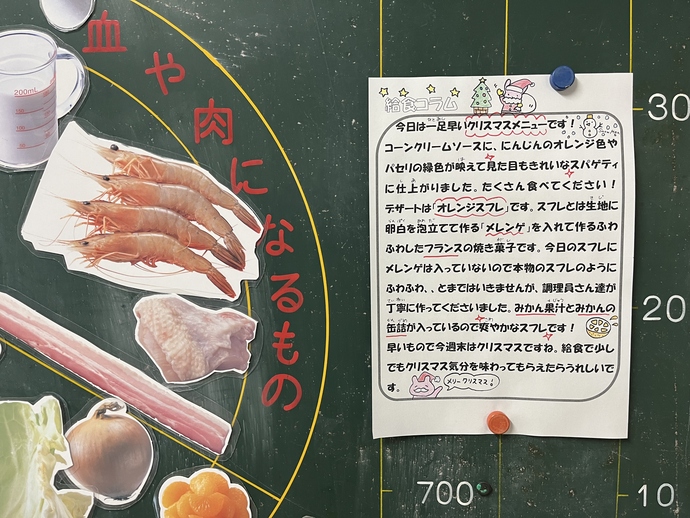 血や肉になるもの
200mL
給食コラム
今日は一足早いクリスマスメニューです！
コーンクリームソースに、にんじんのオレンジ色や
パセリの緑色が映えて見た目もきれいなスパゲティ
に仕上がりました。たくさん食べてください！
デザートは「オレンジスフレ」です。スフレとは生地に
卵白を泡立てて作る「メレンゲ」を入れて作るふわ
ふわしたフランスの焼き菓子です。今日のスフレに
メレンゲは入っていないので本物のスフレのように
ふわふわ、、とまではいきませんが、調理員さん達が
丁寧に作ってくださいました。みかん果汁とみかんの
缶詰が入っているので爽やかなスフレです！
早いもので今週末はクリスマスですね。給食で少し
でもクリスマス気分を味わってもらえたらうれしいで
す。
メリークリスマス！
30
20
700
10